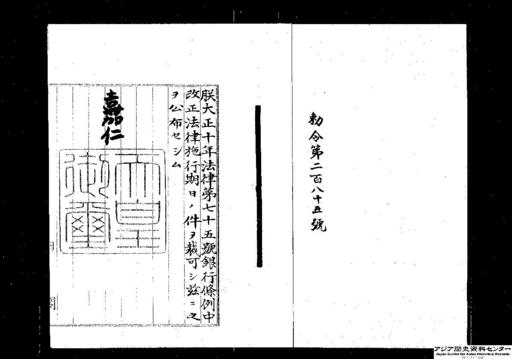 勅令第二百八十五號
朕大正十年法律第七十五號銀行條例中
改正法律施行期日ノ件ヲ裁可シ茲ニ之
ヲ公布セシム
嘉仁
天皇
御璽
アジア歴史資料センター
Japan Center for Asian Historical Records